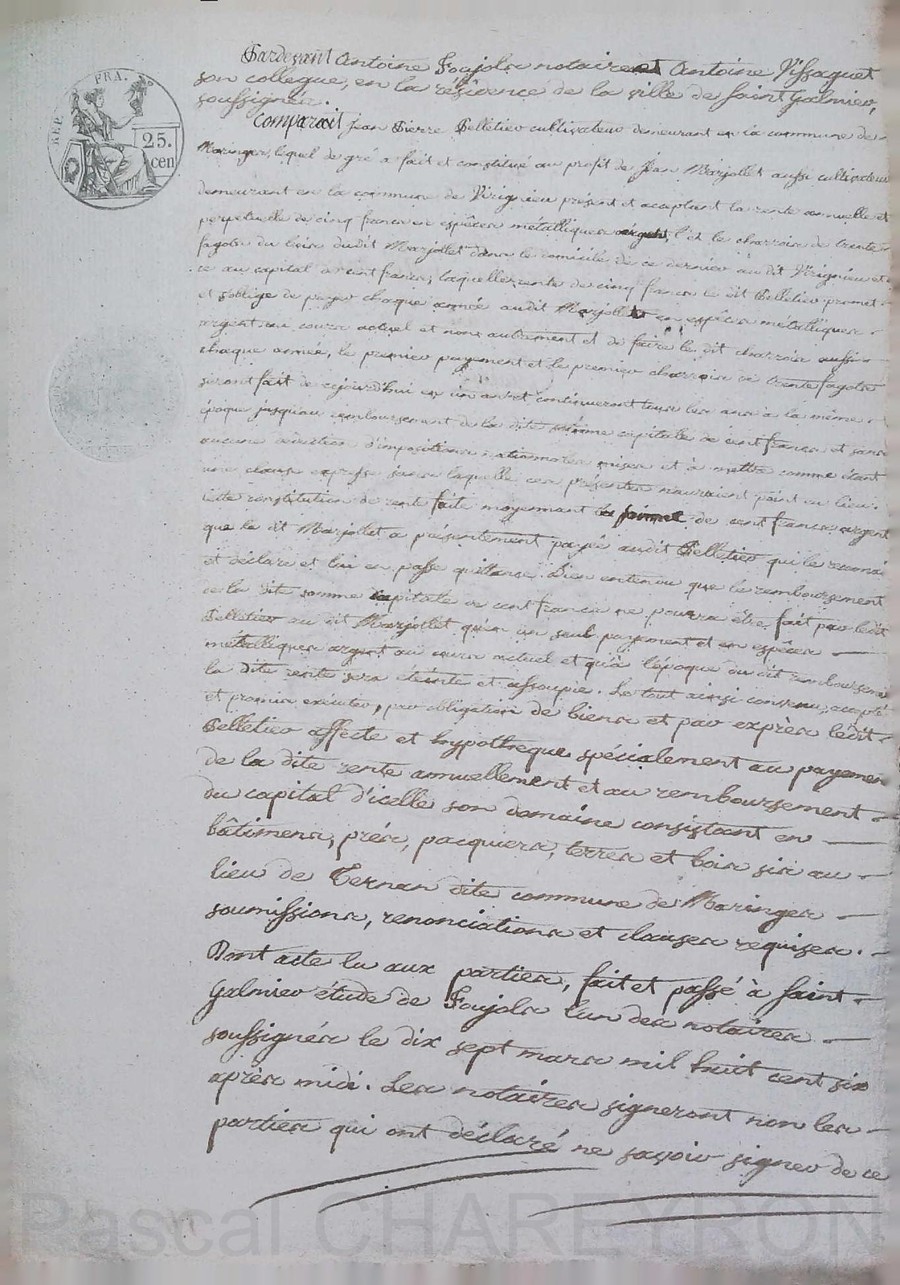 REP. FRA.
25.
cen
Pardevant Antoine Foujols notaire et Antoine Vissaguet
son collegue, en la résidence de la ville de Saint galmier,
soussignés.
Comparait Jean Pierre Pelletier cultivateur demeurant en la commune de
Maringes, lequel de gré a fait et constitué au profit de Jean Marjollet aussi cultivateur
demeurant en la commune de Virignieu présent et acceptant la rente annuelle et
perpetuelle de cinq francs en espèces métalliques argent, et le charrois de trente
fagots du bois dudit Marjollet dans le domicile de ce dernier audit Virignieu et
ce au capital de cent francs; laquelle rente de cinq francs le dit Pelletier promet
et s'oblige de payer chaque année audit Marjollet en espèces métalliques
argent au cours actuel et non autrement et de faire le dit charrois aussi
chaque année, le premier payement et le premier charrois de trente fagots
seront fait de cejourd'hui en un an et continueront tous les ans à la même
époque jusqu'au remboursement de la dite somme capitale de cent francs et sans
aucune déduction d'impositions mises et à mettre comme étant
une clause expresse sans laquelle ces présentes n'auraient point eu lieu.
Cette constitution de rente faite moyennant la somme de cent francs argent
que le dit Marjollet a présentement payée audit Pelletier qui le reconnai
et déclare et lui en passe quittance. Bien entendu que le remboursement
de la dite somme capitale de cent francs ne pourra être fait par ledit
Pelletier au dit Marjollet qu'en un seul payement et en espèces
métalliques argent au cours actuel et qu'à l'époque du dit remboursemen
la dite rente sera éteinte et assoupie. Le tout ainsi convenu, accepté
et promis exécuter, par obligation de biens et par exprès ledit
Pelletier affecte et hypotheque spécialement au payement
de la dite rente annuellement et au remboursement
du capital d'icelle son domaine consistant en
bâtimens, prés, pacquiers, terres et bois sis au
lieu de Ternan dite commune de Maringes
soumissions, renonciations et clauses requises.
Dont acte lu aux parties, fait et passé à saint
galmier étude de Foujols l'un des notaires
soussignés le dix sept mars mil huit cent six
après midi. Les notaires signeront non les
parties qui ont déclaré ne savoir signer de ce
Pascal CHAREYRON